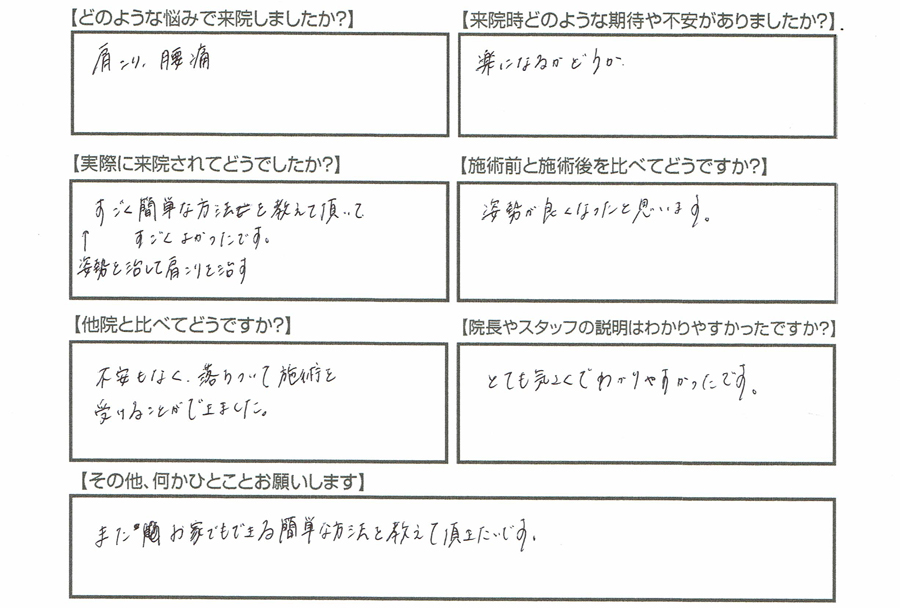 【どのような悩みで来院しましたか?】
肩こり、腰痛
【来院時どのような期待や不安がありましたか?】
楽になるかどうか
【実際に来院されてどうでしたか?】
すごく簡単な方法を教えて頂いて
↑ すごくよかったです。
姿勢を治して肩こりを治す
【施術前と施術後を比べてどうですか?】
姿勢が良くなったと思います。
【他院と比べてどうですか?】
不安もなく、落ちついて施術を
受けることができました。
【院長やスタッフの説明はわかりやすかったですか?】
とても気さくでわかりやすかったです。
【その他、何かひとことお願いします】
また お家でもできる簡単な方法を教えて頂きたいです。